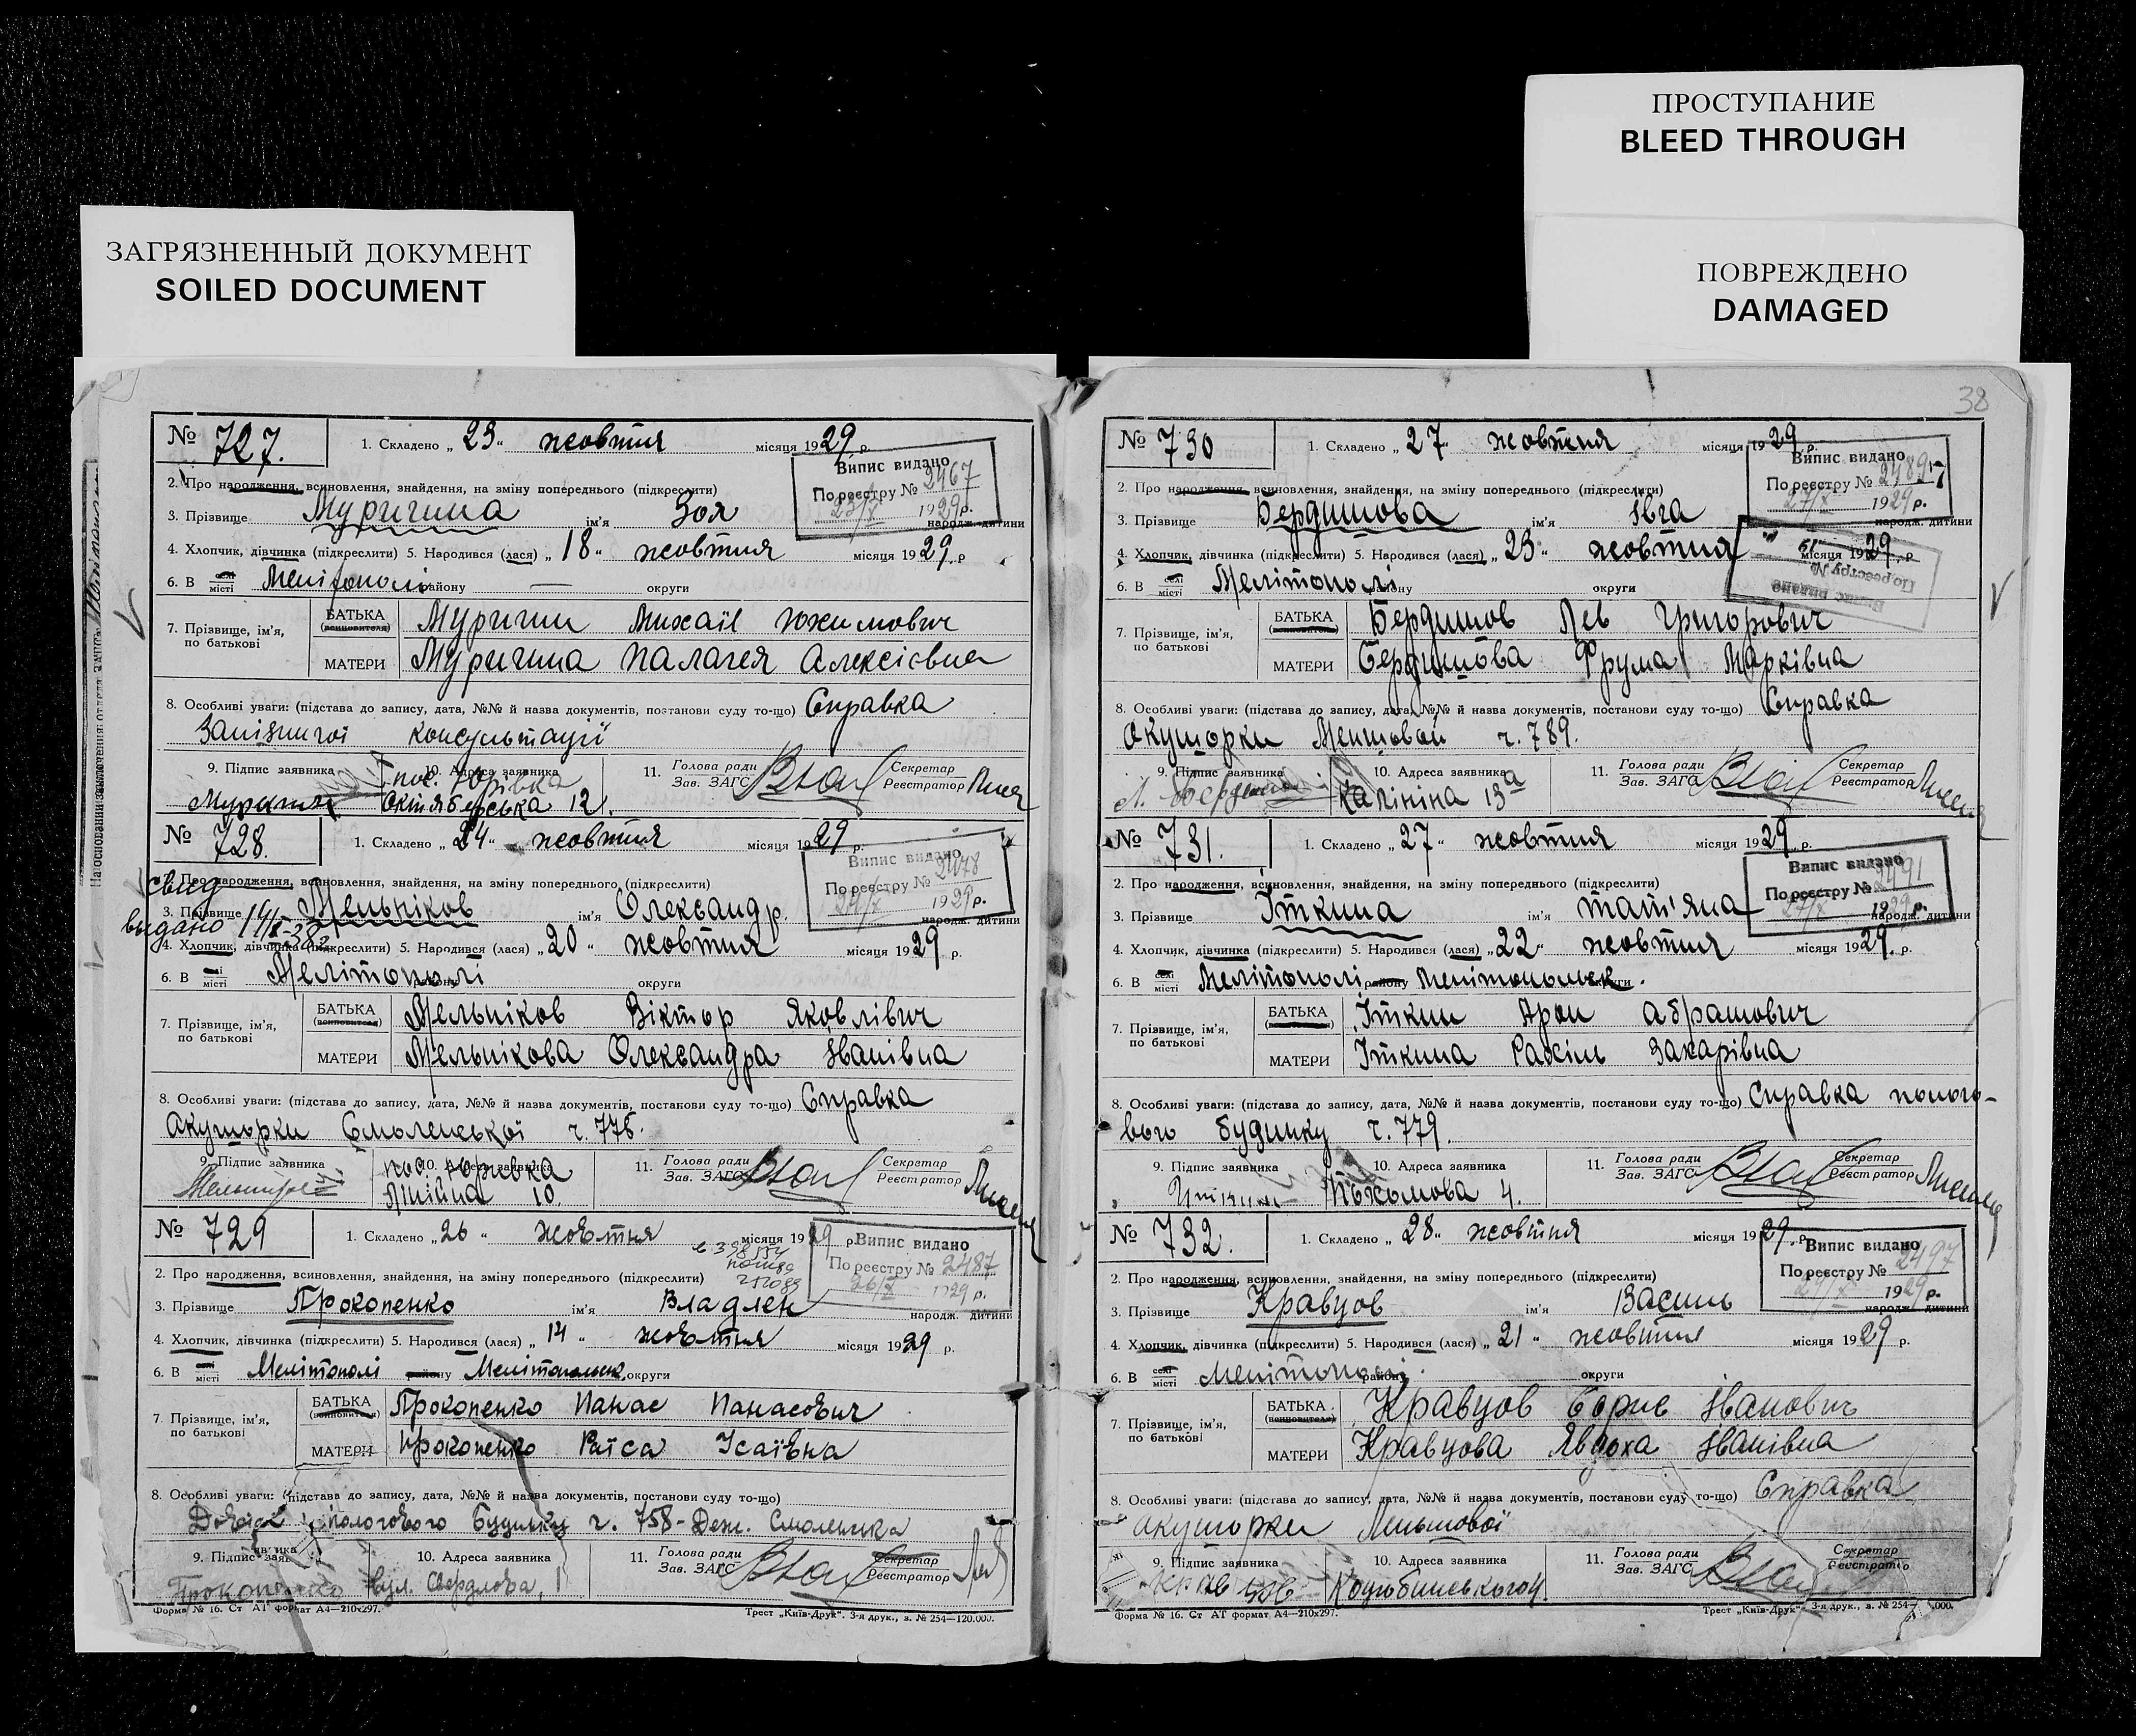 ПРОСТУПАНИЕ
BLEED THROUGH
ЗАГРЯЗНЕННЫЙ ДОКУМЕНТ
SOILED DOCUMENT
ПОВРЕЖДЕНО
DAMAGED
№ 727. 1. Складено „23“ жовтня місяця 1929 р.
Випис видано
По реєстру № 2467
23/X 1929 р.
2. Про народження, всиновлення, знайдення, на зміну попереднього (підкреслити)
3. Прізвище Муригина ім'я Зоя народж. дитини
4. Хлопчик, дівчинка (підкреслити) 5. Народився (лася) „18“ жовтня місяця 1929 р.
6. В селі місті Мелітополі району — округи
7. Прізвище, ім'я, по батькові
БАТЬКА (всиновителя) Муригин Михаїл Юхимович
МАТЕРИ Муригина Палагея Алексієвна
8. Особливі уваги: (підстава до запису, дата, №№ й назва документів, постанови суду то-що) Справка
Залізничої консультації
9. Підпис заявника 10. Адреса заявника 11. Голова ради Зав. ЗАГС Секретар Реєстратор
пос. Юрівка
Октяберська 12.
№ 728. 1. Складено „24“ жовтня місяця 1929 р.
Випис видано
По реєстру № 2478
24/X 1929 р.
2. Про народження, всиновлення, знайдення, на зміну попереднього (підкреслити)
свид
3. Прізвище Мельніков ім'я Олександр. народж. дитини
видано
4. Хлопчик, дівчинка (підкреслити) 5. Народився (лася) „20“ жовтня місяця 1929 р.
6. В селі місті Мелітополі району округи
7. Прізвище, ім'я, по батькові
БАТЬКА (всиновителя) Мельніков Віктор Яковлівич
МАТЕРИ Мельнікова Олександра Іванівна
8. Особливі уваги: (підстава до запису, дата, №№ й назва документів, постанови суду то-що) Справка
Акушорки Смоленської ч. 776.
9. Підпис заявника 10. Адреса заявника 11. Голова ради Зав. ЗАГС Секретар Реєстратор
пос. Юрівка
Лінійна 10.
№ 729 1. Складено „26“ жовтня місяця 1929 р.
Випис видано
По реєстру № 2487
26/X 1929 р.
2. Про народження, всиновлення, знайдення, на зміну попереднього (підкреслити)
3. Прізвище Прокопенко ім'я Владлен народж. дитини
4. Хлопчик, дівчинка (підкреслити) 5. Народився (лася) „14“ жовтня місяця 1929 р.
6. В селі місті Мелітополі району Мелітопольск. округи
7. Прізвище, ім'я, по батькові
БАТЬКА (всиновителя) Прокопенко Панас Панасович
МАТЕРИ Прокопенко Раїса Ісаївна
8. Особливі уваги: (підстава до запису, дата, №№ й назва документів, постанови суду то-що)
пологового будинку ч. 758 - Смоленська
9. Підпис заявника 10. Адреса заявника 11. Голова ради Зав. ЗАГС Секретар Реєстратор
Прокопенко вул. Свердлова, 1
Форма № 16. Ст АТ формат А4—210х297. Трест „Київ-Друк“. 3-я друк., з. № 254—120.000.
38
№ 730 1. Складено „27“ жовтня місяця 1929 р.
Випис видано
По реєстру № 2489
27/X 1929 р.
2. Про народження, всиновлення, знайдення, на зміну попереднього (підкреслити)
3. Прізвище Бердишова ім'я Івга народж. дитини
4. Хлопчик, дівчинка (підкреслити) 5. Народився (лася) „23“ жовтня місяця 1929 р.
Випис видано
По реєстру №
6. В селі місті Мелітополі району округи
7. Прізвище, ім'я, по батькові
БАТЬКА Бердишов Лев Григорович
МАТЕРИ Бердишова Фрума Марківна
8. Особливі уваги: (підстава до запису, дата, №№ й назва документів, постанови суду то-що) Справка
Акушорки Меншовой ч. 789.
9. Підпис заявника 10. Адреса заявника 11. Голова ради Зав. ЗАГС Секретар Реєстратор
Калініна 13а
№ 731. 1. Складено „27“ жовтня місяця 1929 р.
Випис видано
По реєстру № 2491
27/X 1929 р.
2. Про народження, всиновлення, знайдення, на зміну попереднього (підкреслити)
3. Прізвище Іткина ім'я Тат'яна народж. дитини
4. Хлопчик, дівчинка (підкреслити) 5. Народився (лася) „22“ жовтня місяця 1929 р.
6. В селі місті Мелітополі району Мелітопольск. округи
7. Прізвище, ім'я, по батькові
БАТЬКА Іткин Арон Абрамович
МАТЕРИ Іткина Рахіль Захарівна
8. Особливі уваги: (підстава до запису, дата, №№ й назва документів, постанови суду то-що) Справка полого-
вого будинку ч. 779.
9. Підпис заявника 10. Адреса заявника 11. Голова ради Зав. ЗАГС Секретар Реєстратор
№ 732. 1. Складено „28“ жовтня місяця 1929 р.
Випис видано
По реєстру № 2497
1929 р.
2. Про народження, всиновлення, знайдення, на зміну попереднього (підкреслити)
3. Прізвище Кравцов ім'я Василь народж. дитини
4. Хлопчик, дівчинка (підкреслити) 5. Народився (лася) „21“ жовтня місяця 1929 р.
6. В селі місті Мелітополі району округи
7. Прізвище, ім'я, по батькові
БАТЬКА (всиновителя) Кравцов Борис Іванович
МАТЕРИ Кравцова Явдоха Іванівна
8. Особливі уваги: (підстава до запису, дата, №№ й назва документів, постанови суду то-що) Справка
акушорки Меньшової
9. Підпис заявника 10. Адреса заявника 11. Голова ради Зав. ЗАГС Секретар
Коцюбинського 4.
Форма № 16. Ст АТ формат А4—210х297. Трест „Київ-Друк“ 3-я друк., з. № 254